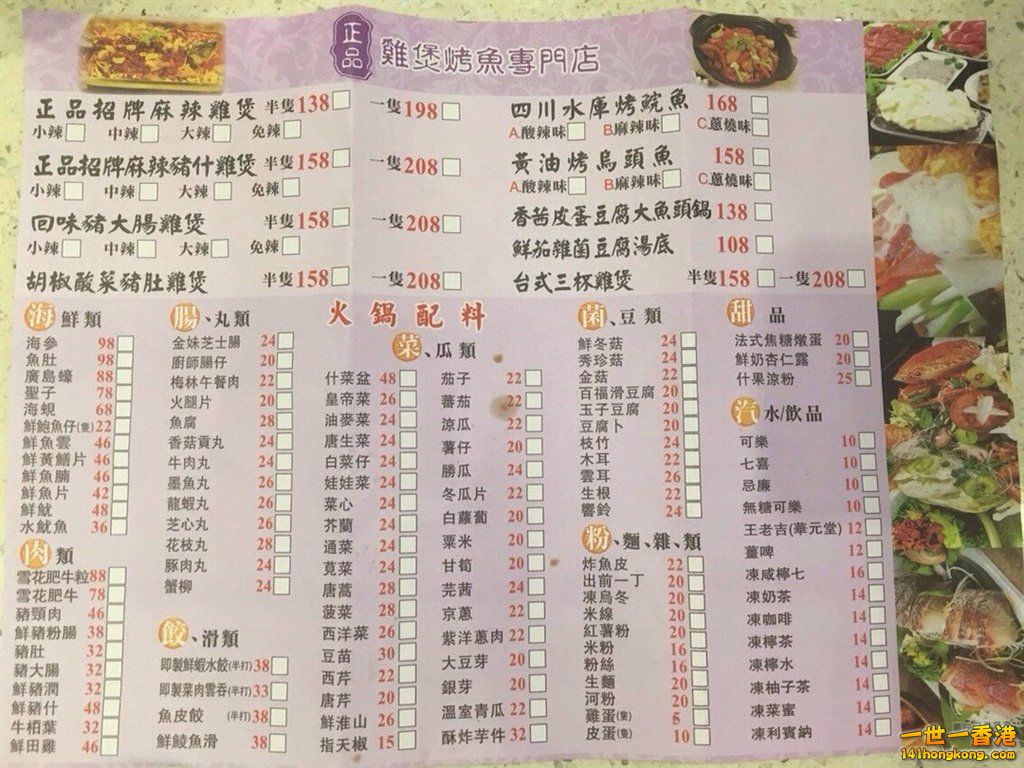 正品 雞煲烤魚專門店
正品招牌麻辣雞煲 半隻138 一隻198
小辣 中辣 大辣 免辣
正品招牌麻辣豬什雞煲 半隻158 一隻208
小辣 中辣 大辣 免辣
回味豬大腸雞煲 半隻158 一隻208
小辣 中辣 大辣 免辣
胡椒酸菜豬肚雞煲 半隻158 一隻208
四川水庫烤鯇魚 168
A.酸辣味 B.麻辣味 C.蔥燒味
黃油烤烏頭魚 158
A.酸辣味 B.麻辣味 C.蔥燒味
香茜皮蛋豆腐大魚頭鍋 138
鮮茄雜菌豆腐湯底 108
台式三杯雞煲 半隻158 一隻208
火鍋配料
海鮮類
海參 98
魚肚 98
廣島蠔 88
聖子 78
海蜆 68
鮮鮑魚仔(隻) 22
鮮魚雲 46
鮮黃鱔片 46
鮮魚腩 46
鮮魚片 42
鮮魷 48
水魷魚 36
肉類
雪花肥牛粒 88
雪花肥牛 78
豬頸肉 46
鮮豬粉腸 38
豬肚 32
豬大腸 32
鮮豬潤 32
鮮豬什 48
牛栢葉 32
鮮田雞 46
腸、丸類
金妹芝士腸 24
廚師腸仔 20
梅林午餐肉 22
火腿片 20
魚腐 28
香菇貢丸 24
牛肉丸 24
墨魚丸 26
龍蝦丸 26
芝心丸 26
花枝丸 28
豚肉丸 24
蟹柳 24
餃、滑類
即製鮮蝦水餃(半打) 38
即製菜肉雲吞(半打) 33
魚皮餃 (半打) 38
鮮鯪魚滑 38
菜、瓜類
什菜盆 48
皇帝菜 26
油麥菜 24
唐生菜 24
白菜仔 24
娃娃菜 24
菜心 24
芥蘭 24
通菜 24
莧菜 24
唐蒿 28
菠菜 28
西洋菜 26
豆苗 30
西芹 22
唐芹 20
鮮淮山 26
指天椒 15
茄子 22
蕃茄 22
涼瓜 22
薯仔 20
勝瓜 24
冬瓜片 22
白蘿蔔 20
粟米 20
甘筍 20
芫茜 24
京蔥 22
紫洋蔥肉 22
大豆芽 20
銀芽 20
溫室青瓜 22
酥炸芋件 32
菌、豆類
鮮冬菇 24
秀珍菇 24
金菇 22
百福滑豆腐 20
玉子豆腐 20
豆腐卜 20
枝竹 24
木耳 22
雲耳 26
生根 22
響鈴 24
粉、麵、雜、類
炸魚皮 22
出前一丁 20
凍烏冬 20
米線 20
紅薯粉 20
米粉 16
粉絲 16
生麵 20
河粉 20
雞蛋(隻) 5
皮蛋(隻) 10
甜品
法式焦糖燉蛋 20
鮮奶杏仁露 20
什果涼粉 25
汽水/飲品
可樂 10
七喜 10
忌廉 10
無糖可樂 10
王老吉(華元堂) 12
薑啤 12
凍咸檸七 16
凍奶茶 14
凍咖啡 14
凍檸茶 14
凍檸水 14
凍柚子茶 14
凍菜蜜 14
凍利賓納 14
一世一香港
141hongkong.com